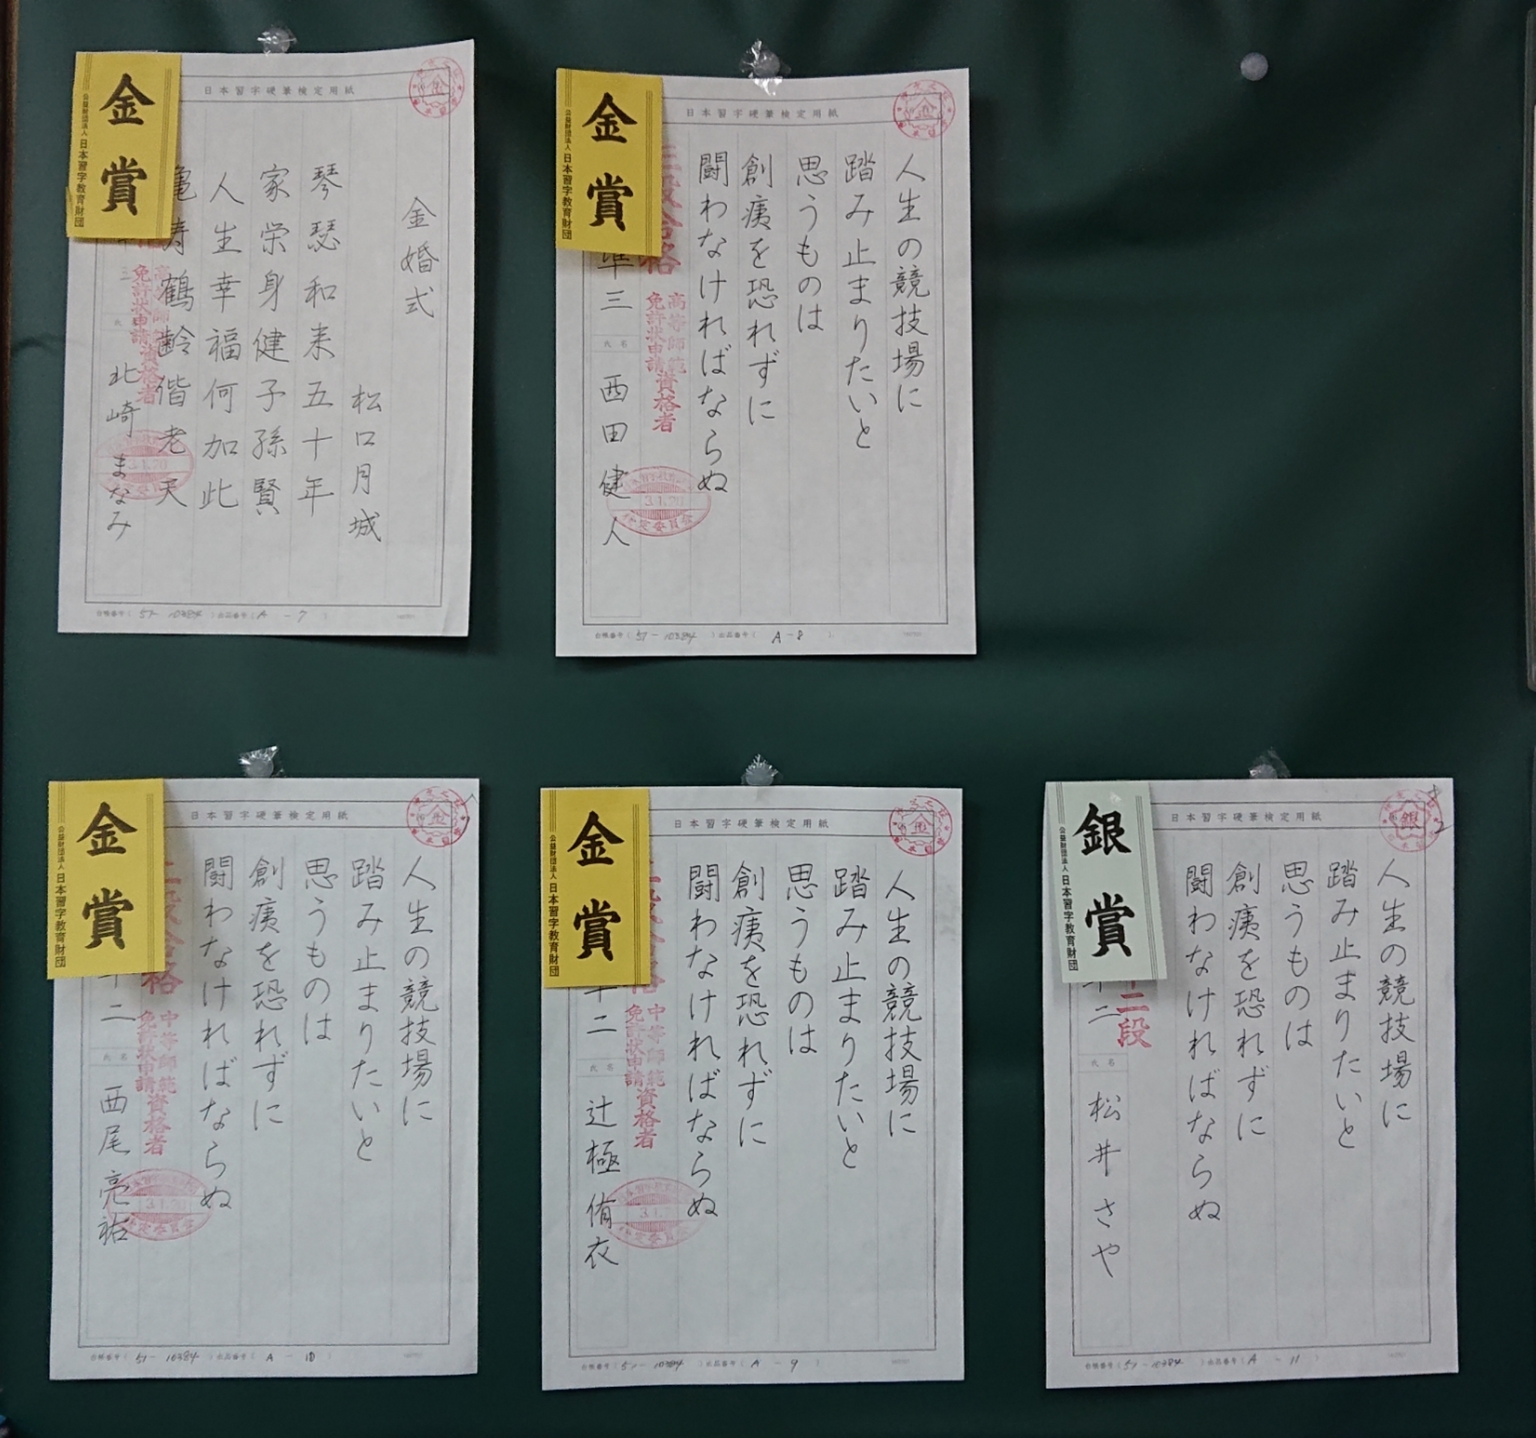 金賞
公益財団法人 日本習字教育財団
日本習字硬筆検定用紙
金婚式
松口月城
琴瑟和来五十年
家栄身健子孫賢
人生幸福何加此
亀寿鶴齢偕老天
高等師範
免許状申請資格者
北崎まなみ
51-10384
A-7
金賞
公益財団法人 日本習字教育財団
日本習字硬筆検定用紙
人生の競技場に
踏み止まりたいと
思うものは
創痍を恐れずに
闘わなければならぬ
高等師範
免許状申請資格者
準三
氏名
西田健人
台帳番号(51-10384)出品番号(A-8)
金賞
公益財団法人 日本習字教育財団
日本習字硬筆検定用紙
人生の競技場に
踏み止まりたいと
思うものは
創痍を恐れずに
闘わなければならぬ
中等師範
免許状申請資格者
氏名
西尾亮祐
台帳番号(51-10384)出品番号(A-10)
金賞
公益財団法人 日本習字教育財団
日本習字硬筆検定用紙
人生の競技場に
踏み止まりたいと
思うものは
創痍を恐れずに
闘わなければならぬ
中等師範
免許状申請資格者
氏名
辻極侑衣
台帳番号(51-10384)出品番号(A-9)
銀賞
公益財団法人 日本習字教育財団
日本習字硬筆検定用紙
人生の競技場に
踏み止まりたいと
思うものは
創痍を恐れずに
闘わなければならぬ
二段
氏名
松井さや
台帳番号(51-10384)出品番号(A-11)